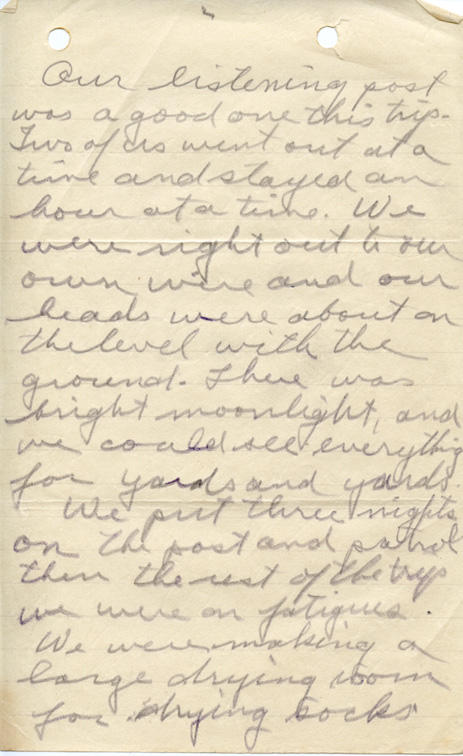 Our listening post
was a good one this trip.
Two of us went out at a
time and stayed an
hour at a time. We
were right out to our
own wire and our
heads were about on
the level with the
ground. There was
bright moonlight, and
we could see everything
for yards and yards.
We put three nights
on the post and patrol
then the rest of the trip
we were on fatigues.
We were making a
large drying room
for drying socks